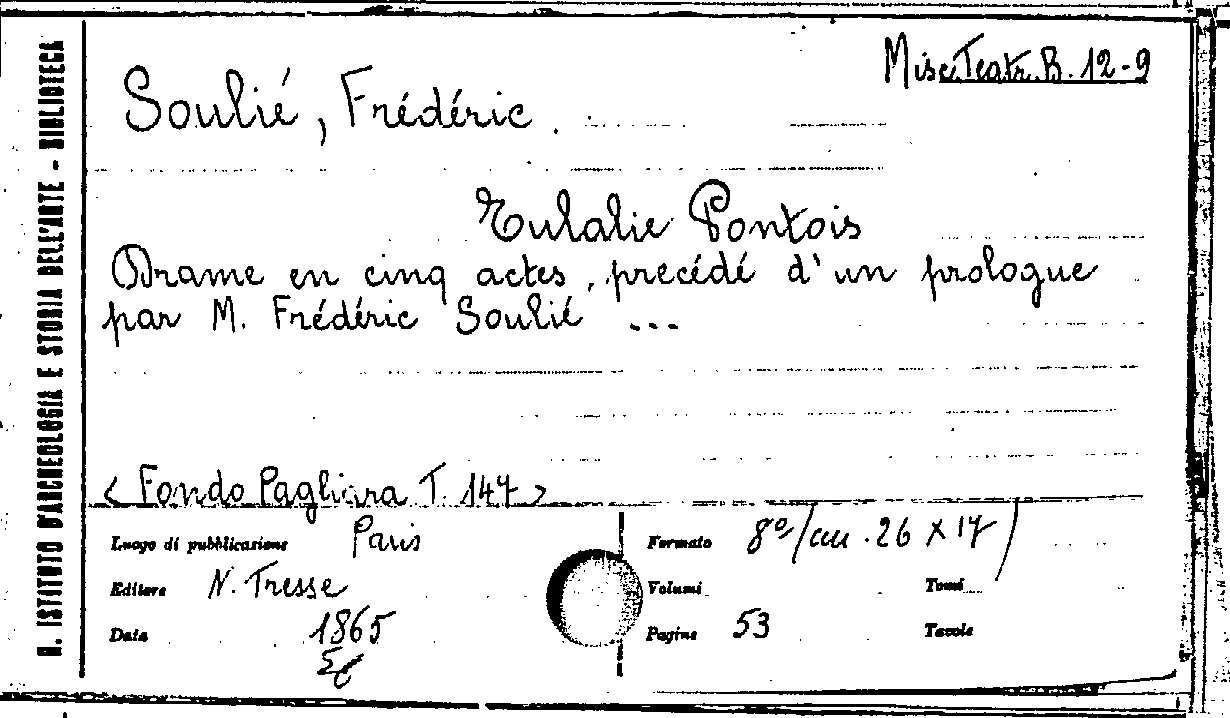 R. ISTITUTO D'ARCHEOLOGIA E STORIA DELL'ARTE - BIBLIOTECA
Misc. Teatr. B. 12-9
Soulié, Frédéric.
Eulalie Pontois
Drame en cinq actes, precédé d'un prologue
par M. Frédéric Soulié ...
< Fondo Pagliara T. 147 >
Luogo di pubblicazione Paris
Formato 8º/cm. 26 X 17)
Editore N. Tresse
Volumi
Tomi
Data 1865
Pagine 53
Tavole